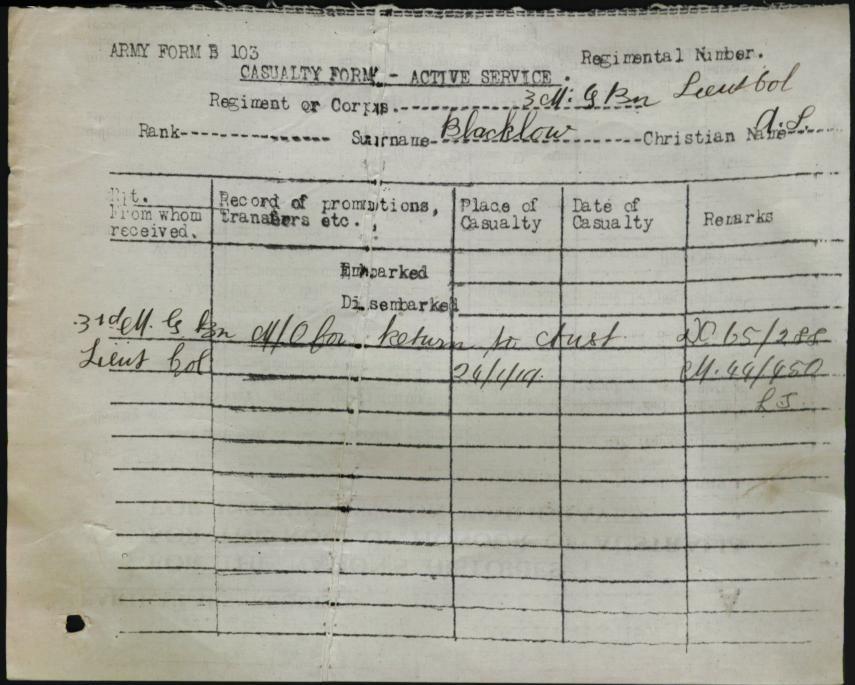 ARMY FORM B 103
Regimental Number.
CASUALTY FORM - ACTIVE SERVICE.
Regiment or Corps. 3 M. G Bn Lieut Col
Rank Surname Blacklow Christian Name A.S.
Unit. From whom received.
Record of promotions, transfers etc.,
Place of Casualty
Date of Casualty
Remarks
Embarked
Disembarked
3rd M. G Bn M/O for return to Aust DO 65/288
Lieut Col 24/1/19. M. 44/450